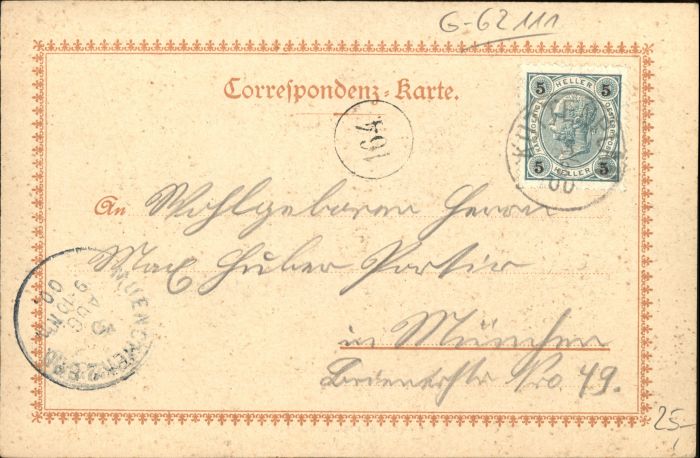 G-62111
Correspondenz-Karte.
5 HELLER 5
5 HELLER 5
00
164
An Wohlgeboren Herrn
Max Huber Portier
in München
Nro 49.
AUG
9-10 N
00
25-